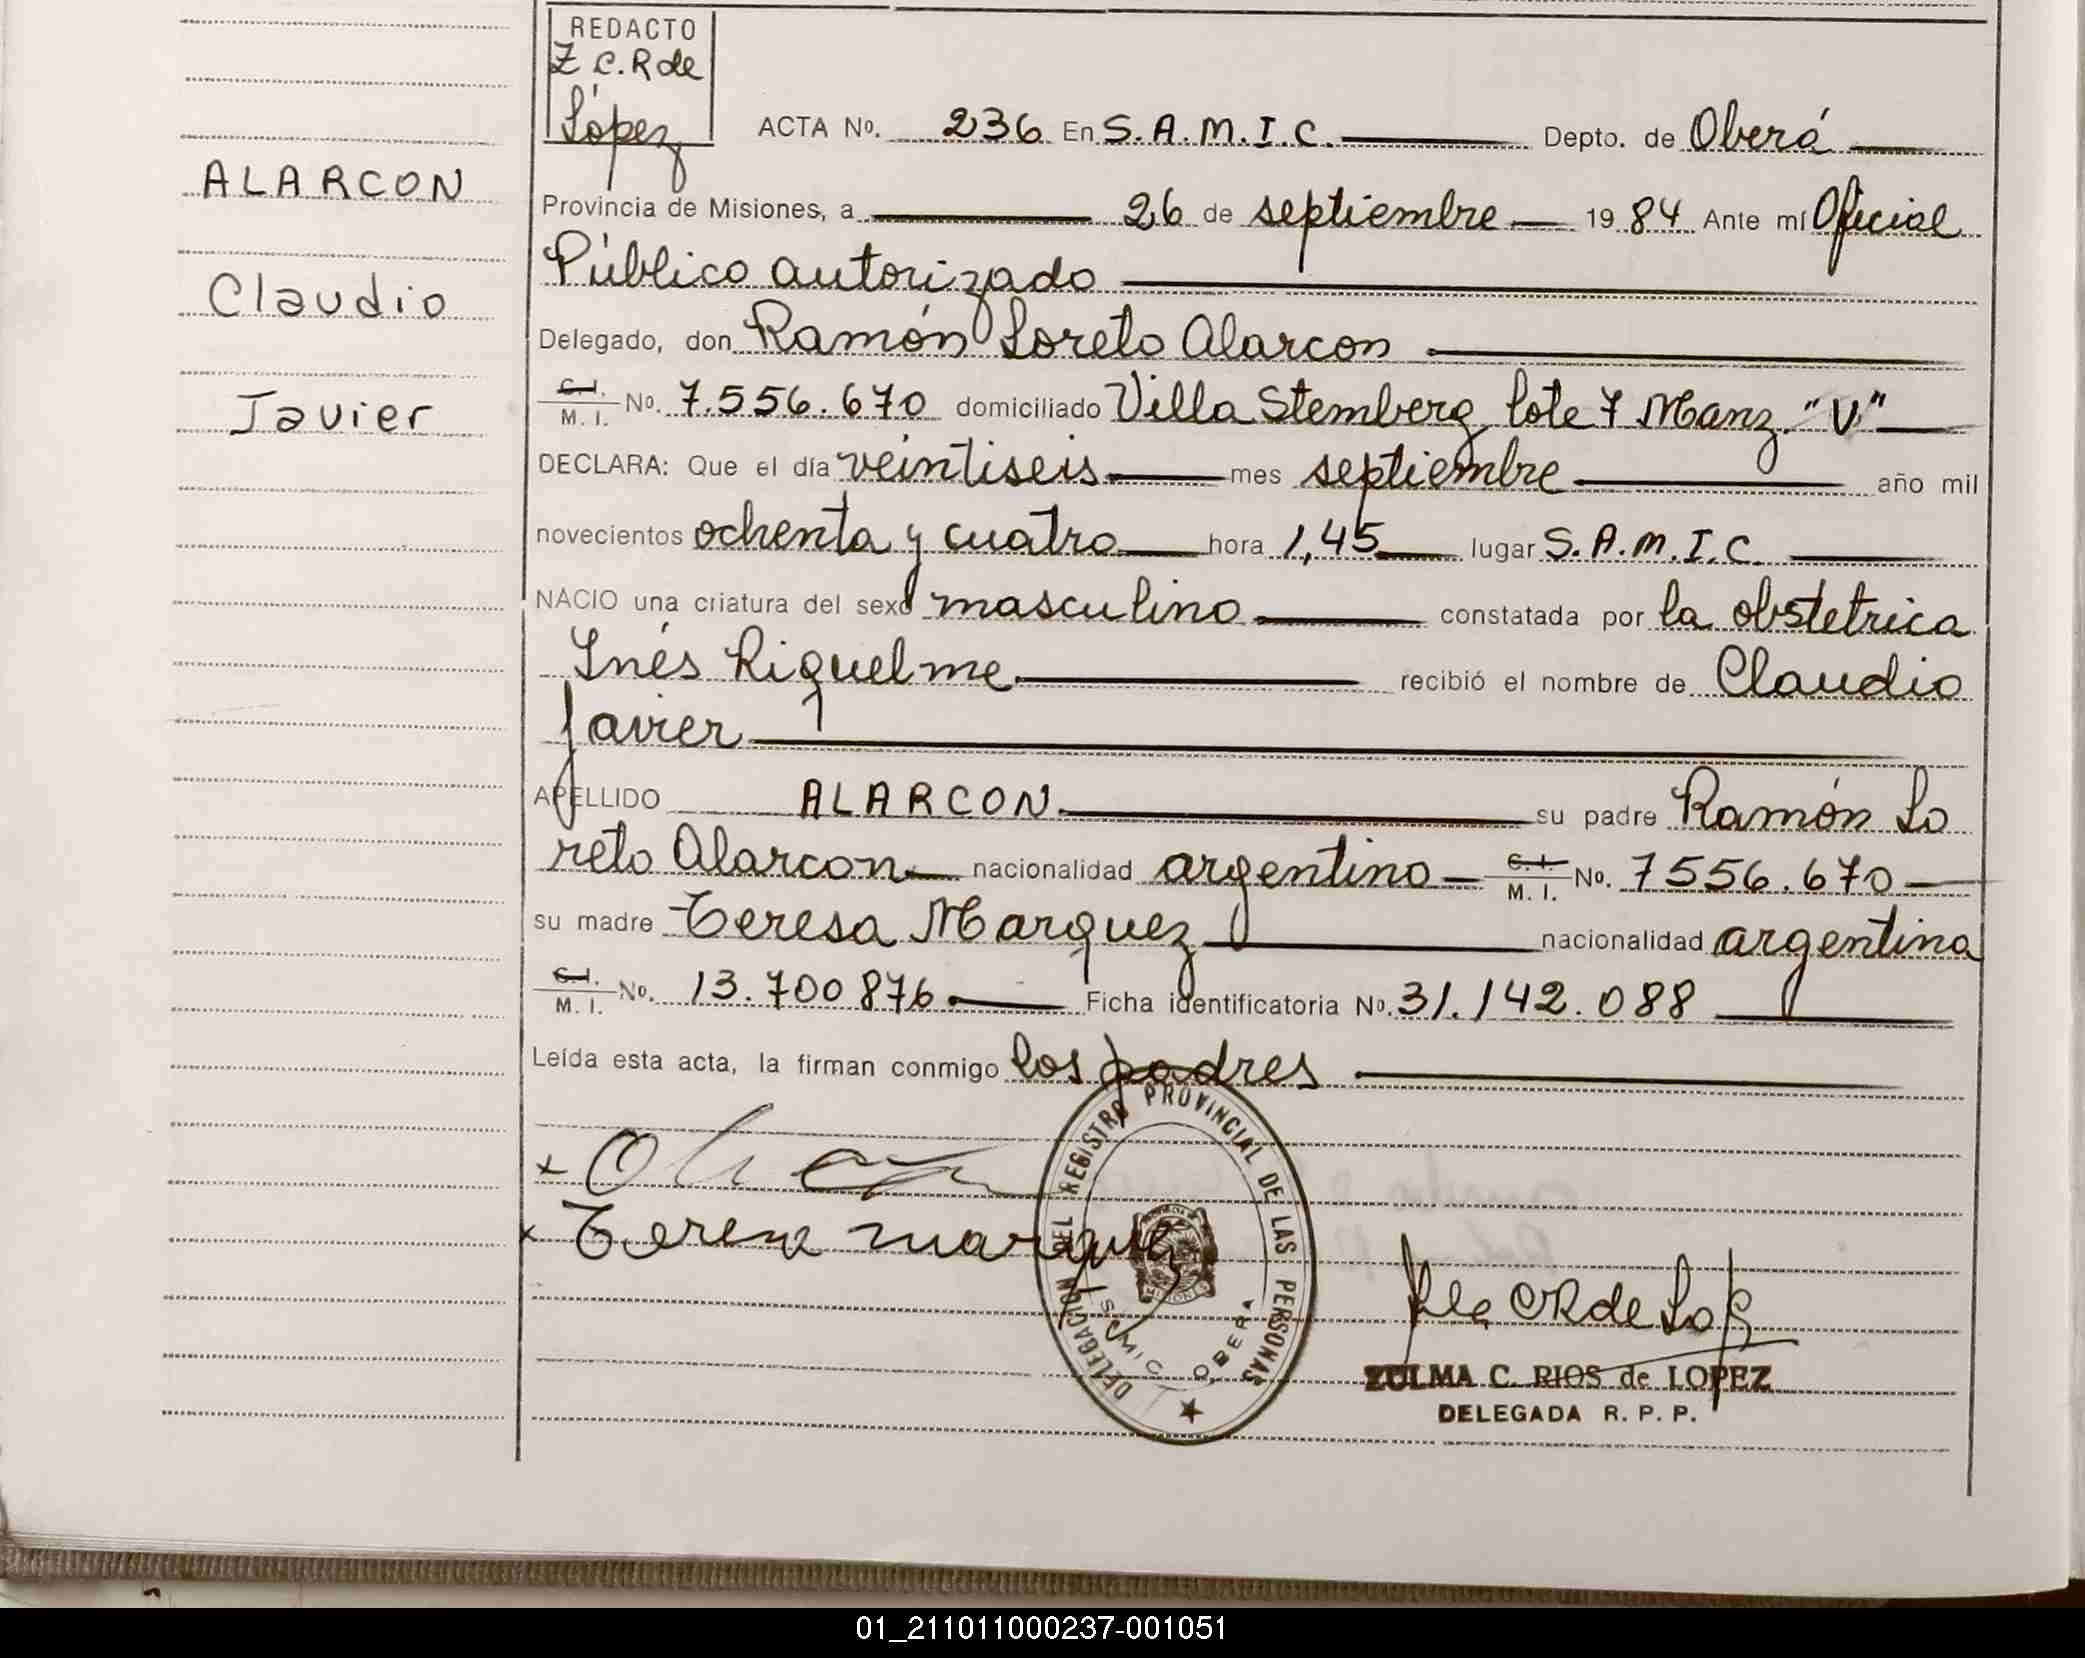 REDACTO
Z C. R de
López
ACTA No. 236 En S. A. M. I. C. Depto. de Oberá
ALARCON
Claudio
Javier
Provincia de Misiones, a 26 de septiembre 1984 Ante mí Oficial
Público autorizado
Delegado, don Ramón Loreto Alarcon
C. I. / M. I. No. 7.556.670 domiciliado Villa Stemberg lote 7 Manz. "V"
DECLARA: Que el día veintiseis mes septiembre año mil
novecientos ochenta y cuatro hora 1,45 lugar S. A. M. I. C.
NACIO una criatura del sexo masculino constatada por la obstetrica
Inés Riquelme recibió el nombre de Claudio
Javier
APELLIDO ALARCON su padre Ramón Lo
reto Alarcon nacionalidad argentino C. I. / M. I. No. 7556.670
su madre Teresa Marquez nacionalidad argentina
C. I. / M. I. No. 13.700876 Ficha identificatoria No. 31.142.088
Leída esta acta, la firman conmigo los padres
Teresa marquez
DELEGACION DEL REGISTRO PROVINCIAL DE LAS PERSONAS
SAMIC OBERA
ZULMA C. RIOS de LOPEZ
DELEGADA R. P. P.
01_211011000237-001051